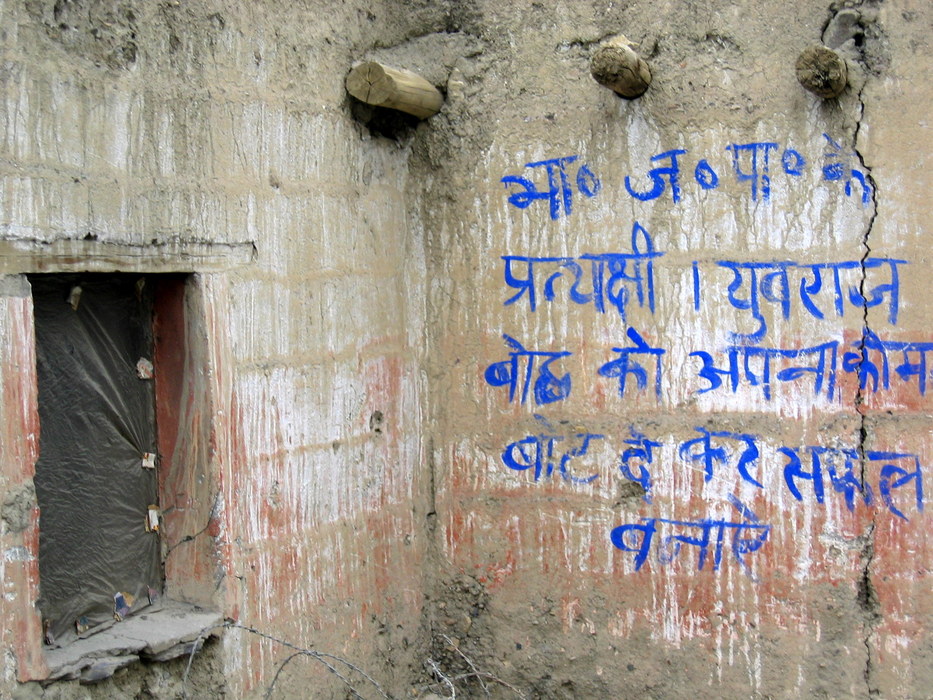 भा॰ ज॰ पा॰ के
प्रत्यक्षी । युवराज
बोद्ध को अपना कोम
बोट दे कर सफल
बनाऐ